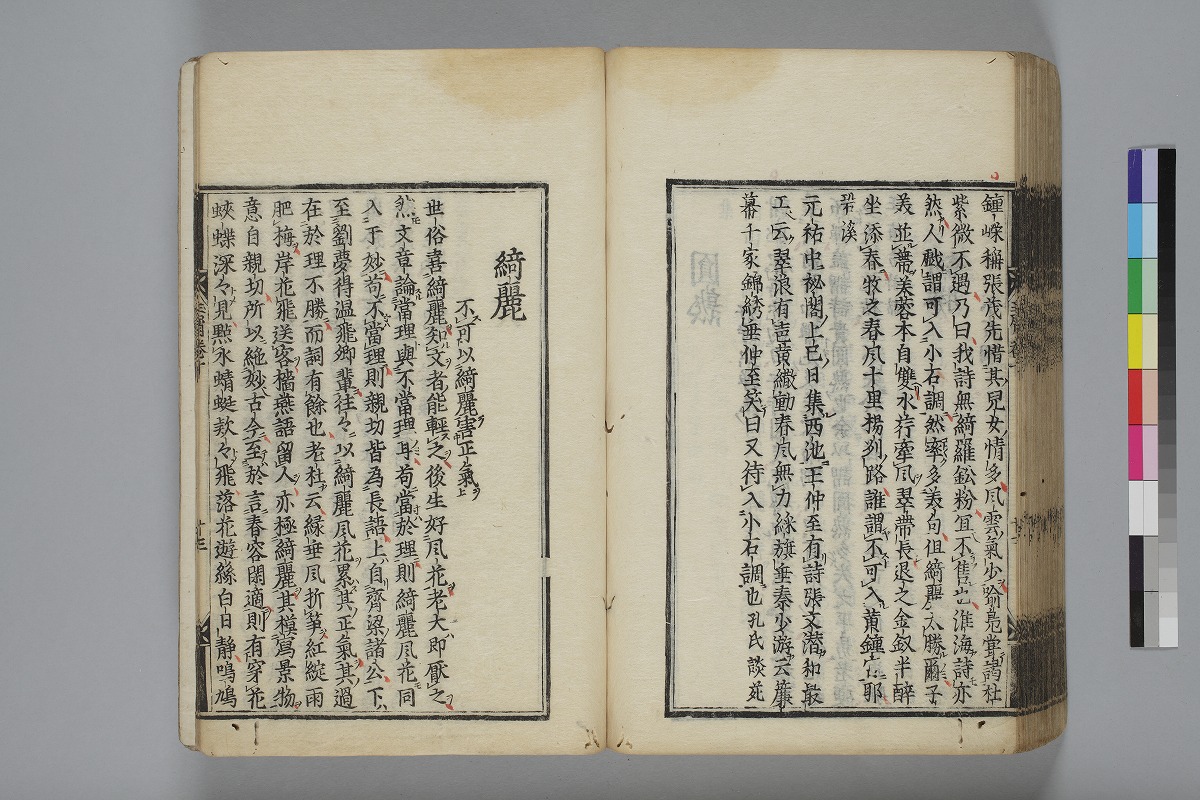 鍾嶸稱張茂先惜其兒女情多風雲氣少喻鳧嘗謁杜
紫微不遇乃曰我詩無綺羅鈆粉宜不售也淮海詩亦
然人戲謂可入小石調然率多美句但綺麗太勝爾子
美並蔕芙蓉本自雙水荇牽風翠帶長退之金釵半醉
坐添春牧之春風十里揚州路誰謂不可入黄鍾宮耶
碧溪
元祐中秘閣上巳日集西池王仲至有詩張文潛和最
工云翠浪有聲黄繖動春風無力綵旗垂秦少游云簾
幕千家錦綉垂仲至笑曰又待入小石調也孔氏談苑
綺麗
不可以綺麗害正氣
世俗喜綺麗知文者能輕之後生好風花老大即厭之
然文章論當理與不當理耳苟當於理則綺麗風花同
入于妙苟不當理則親切皆為長語上自齊梁諸公下
至劉夢得温飛卿輩往々以綺麗風花累其正氣其過
在於理不勝而詞有餘也老杜云綠垂風折笋紅綻雨
肥梅岸花飛送客檣燕語留人亦極綺麗其模寫景物
意自親切所以絶妙古今至於言春容閑適則有穿花
蛺蝶深々見㸃水蜻蜓欵々飛落花遊絲白日静鳴鳩